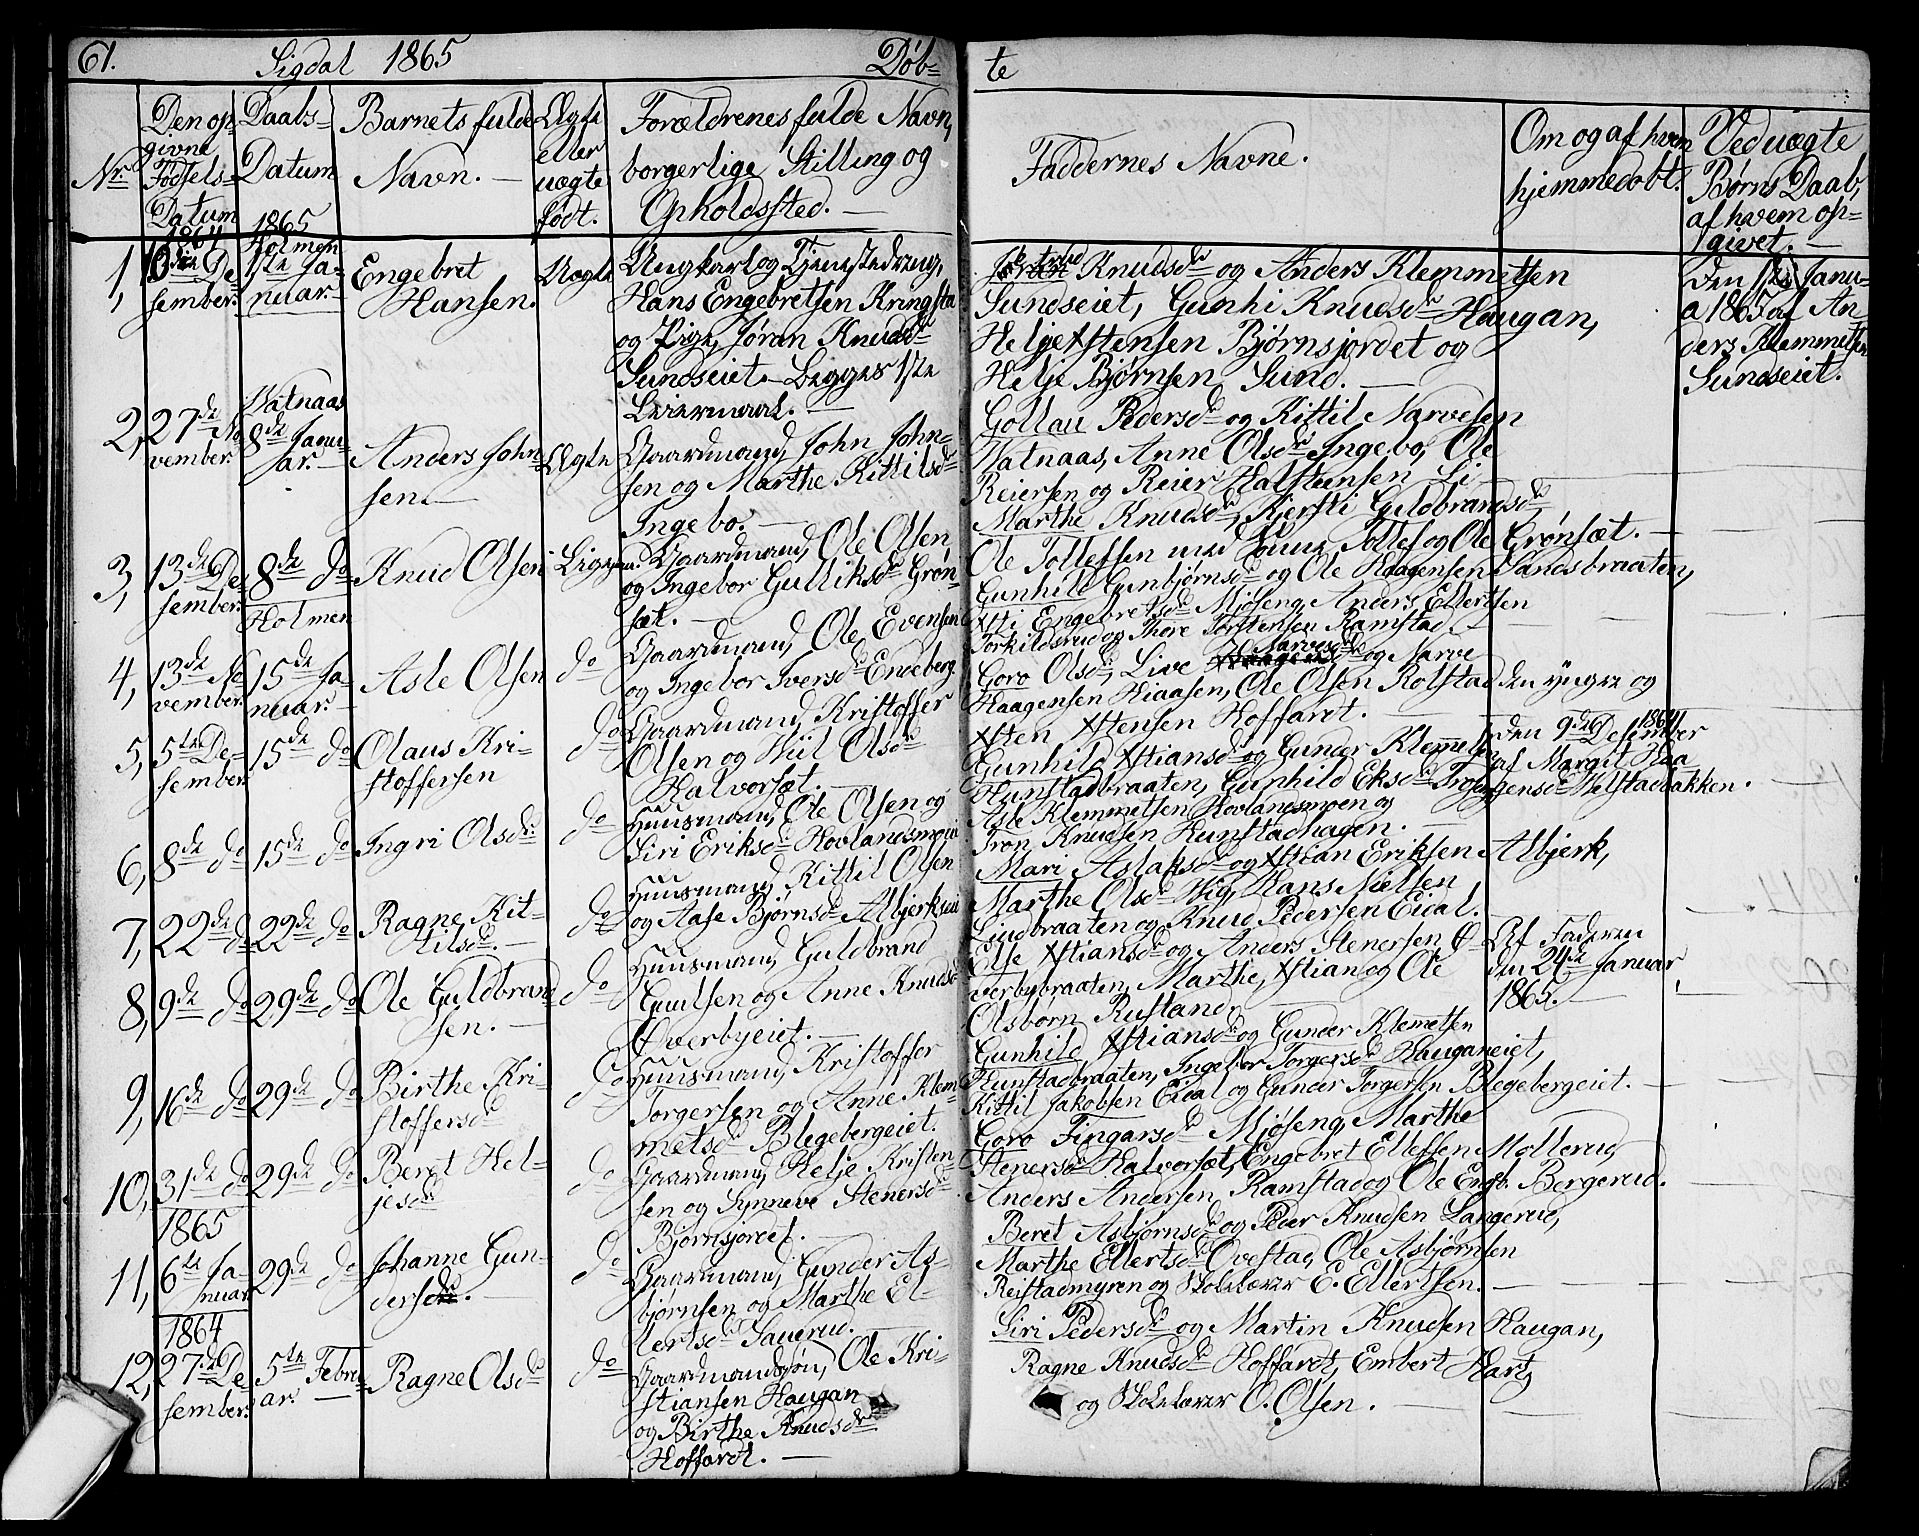 61. Sigdal 1865 Døb-
te
Nr.
Den op-
givne
Fødsels-
Datum
1864
Daabs-
Datum
1865
Barnets fulde
Navn. —
Ægte
eller
uægte
født.
Forældrenes fulde Navn,
borgerlige Stilling og
Opholdssted. —
Faddernes Navne.
Om og af hvem
hjemmedøbt.
Ved uægte
Børns Daab,
af hvem op-
givet. —
1, De-
sember.
Holmen
1ste Ja-
nuar.
Engebret
Hansen.
Uægte
Ungkarl og Tjenestedreng,
Hans Engebretsen Kringsta
og Pige, Jøran Knudsdr
Sundseiet. Begges 1ste
Leiermaal. —
Knudsdr og Anders Klemmetsen
Sundseiet, Gunhi Knudsdr Haugan,
Helje Xstensen Bjørnsjordet og
Helje Bjørnsen Sund. —
Den 1ste Janu-
a 1865 af An-
ders Klemmetsen
Sundseiet.
2, 27de No-
vember.
Vatnaas
8de Janu-
ar. —
Anders John-
sen. —
Ægte
Gaardmand, John John-
sen og Marthe Kittilsdr
Ingebo. —
Gollau Pedersdr og Kittil Narvesen
Vatnaas, Anne Olsdr Ingebo, Ole
Reiersen og Reier Halsteensen Li —
3, 13de De-
sember.
8de do
Holmen
Knud Olsen
Gaardmand, Ole Olsen
og Ingebor Gulliksdr Grøn-
sæt. —
Marthe Knudsdr, Kjersti Guldbrandsdr,
Ole Tollefsen med Sønner Tollef og Ole Grønsæt. —
4, 13de No-
vember.
15de Ja-
nuar. —
Asle Olsen
do
Gaardmand, Ole Evensen
og Ingebor Iversdr Eneberg.
Gunhild Gunbjørnsdr og Ole Haagensen Sandsbraaten,
Xsti Engebretsdr Mjøseng, Anders Ellertsen
Torkildsrud og Thore Torstensen Ramstad. —
5, 5te De-
sember.
15de do
Olaus Kri-
stoffersen
do
Gaardmand, Kristoffer
Olsen og Kiil Olsdr
Halvorsæt. —
Goro Olsdr, Live Narvesdr og Narve
Haagensen Kiaasen, Ole Olsen Rolstad den yngre og
Xsten Xstensen Hoffaret. —
den 9de Desember 1864
af Margit Haa-
gensdr Velstadbakken.
6, 8de do
15de do
Ingri Olsdr:
do
Huusmand, Ole Olsen og
Siri Eriksdr Hovlandsmoen
Gunhild Xstiansdr og Gunder Klemmetsen
Hunstadbraaten, Gunhild Eriksdr
Asle Klemmetsen Hovlandsmoen og
Tron Knudsen Hunstadhagen. —
7, 22de do
22de do
Ragne Kit-
tilsdr. —
do
Huusmand, Kittil Olsen
og Aase Bjørnsdr Albjerkeiet
Mari Aslaksdr og Xstian Eriksen Albjerk,
Marthe Olsdr Vig, Hans Nielsen
Lindbraaten og Knud Pedersen Eidal. —
8, 9de do
29de do
Ole Guldbrand-
sen. —
do
Huusmand, Guldbrand
Gulsen og Anne Knudsdr
Øverbyeiet. —
Else Xstiansdr og Anders Stenersen Ø-
verbybraaten, Marthe, Xstian og Ole
Olsborn Rustand,
Af Faderen
den 24de Januar
1865. —
9, 16de do
29de do
Birthe Kri-
stoffersdr
do
Huusmand, Kristoffer
Torgersen og Anne Klem-
metsdr Blegebergeiet.
Gunhild Xstiansdr og Gunder Klemetsen
Hunstadbraaten, Ingebor Torgersdr Hauganeiet,
Kittil Jakobsen Eidal og Gunder Torgersen Blegebergeiet. —
10, 31de do
29de do
Beret Hel-
jesdr
do
Gaardmand, Helje Kristen-
sen og Synneve Stenersdr
Bjørnsjordet. —
Goro Fingarsdr Mjøseng, Marthe
Stenersdr Halvorsæt, Engebret Ellefsen Mollerud,
Anders Andersen, Ramstad og Ole Engb. Bergerud.
1865
11, 6te Ja-
nuar
29de do
Johanne Gun-
dersdr. —
do
Gaardmand, Gunder As-
bjørnsen og Marthe El-
lertsdr Saverud. —
Beret Asbjørnsdr og Peder Knudsen Langerud,
Marthe Ellertsdr Ovestad, Ole Asbjørnsen
Reistadmyren og Skolelærer E. Ellertsen. —
1864
12, 27de De-
sember.
5te Febru-
ar. —
Ragne Olsdr
do
Gaardmandssøn, Ole Kri-
stiansen Haugan
og Birthe Knudsdr
Hoffaret. —
Siri Pedersdr og Martin Knudsen Haugan,
Ragne Knudsdr Hoffaret, Embert Hart,
og Skolelærer O. Olsen. —